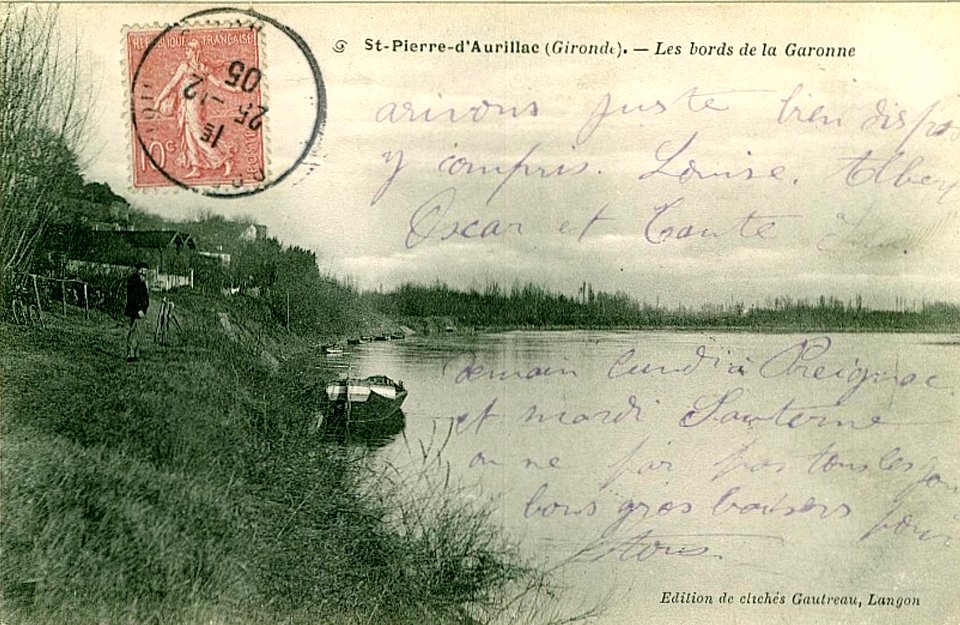 St-Pierre-d'Aurillac (Gironde). — Les bords de la Garonne
REPUBLIQUE FRANÇAISE
10c
15
25 -12
05
arivons juste bien dispos
y compris. Louise. Albert
Oscar et Tante
Demain lundi à Preignac
et mardi Sauterne
on ne pas tous les
bons gros baisers pour
tous.
Edition de clichés Gautreau, Langon